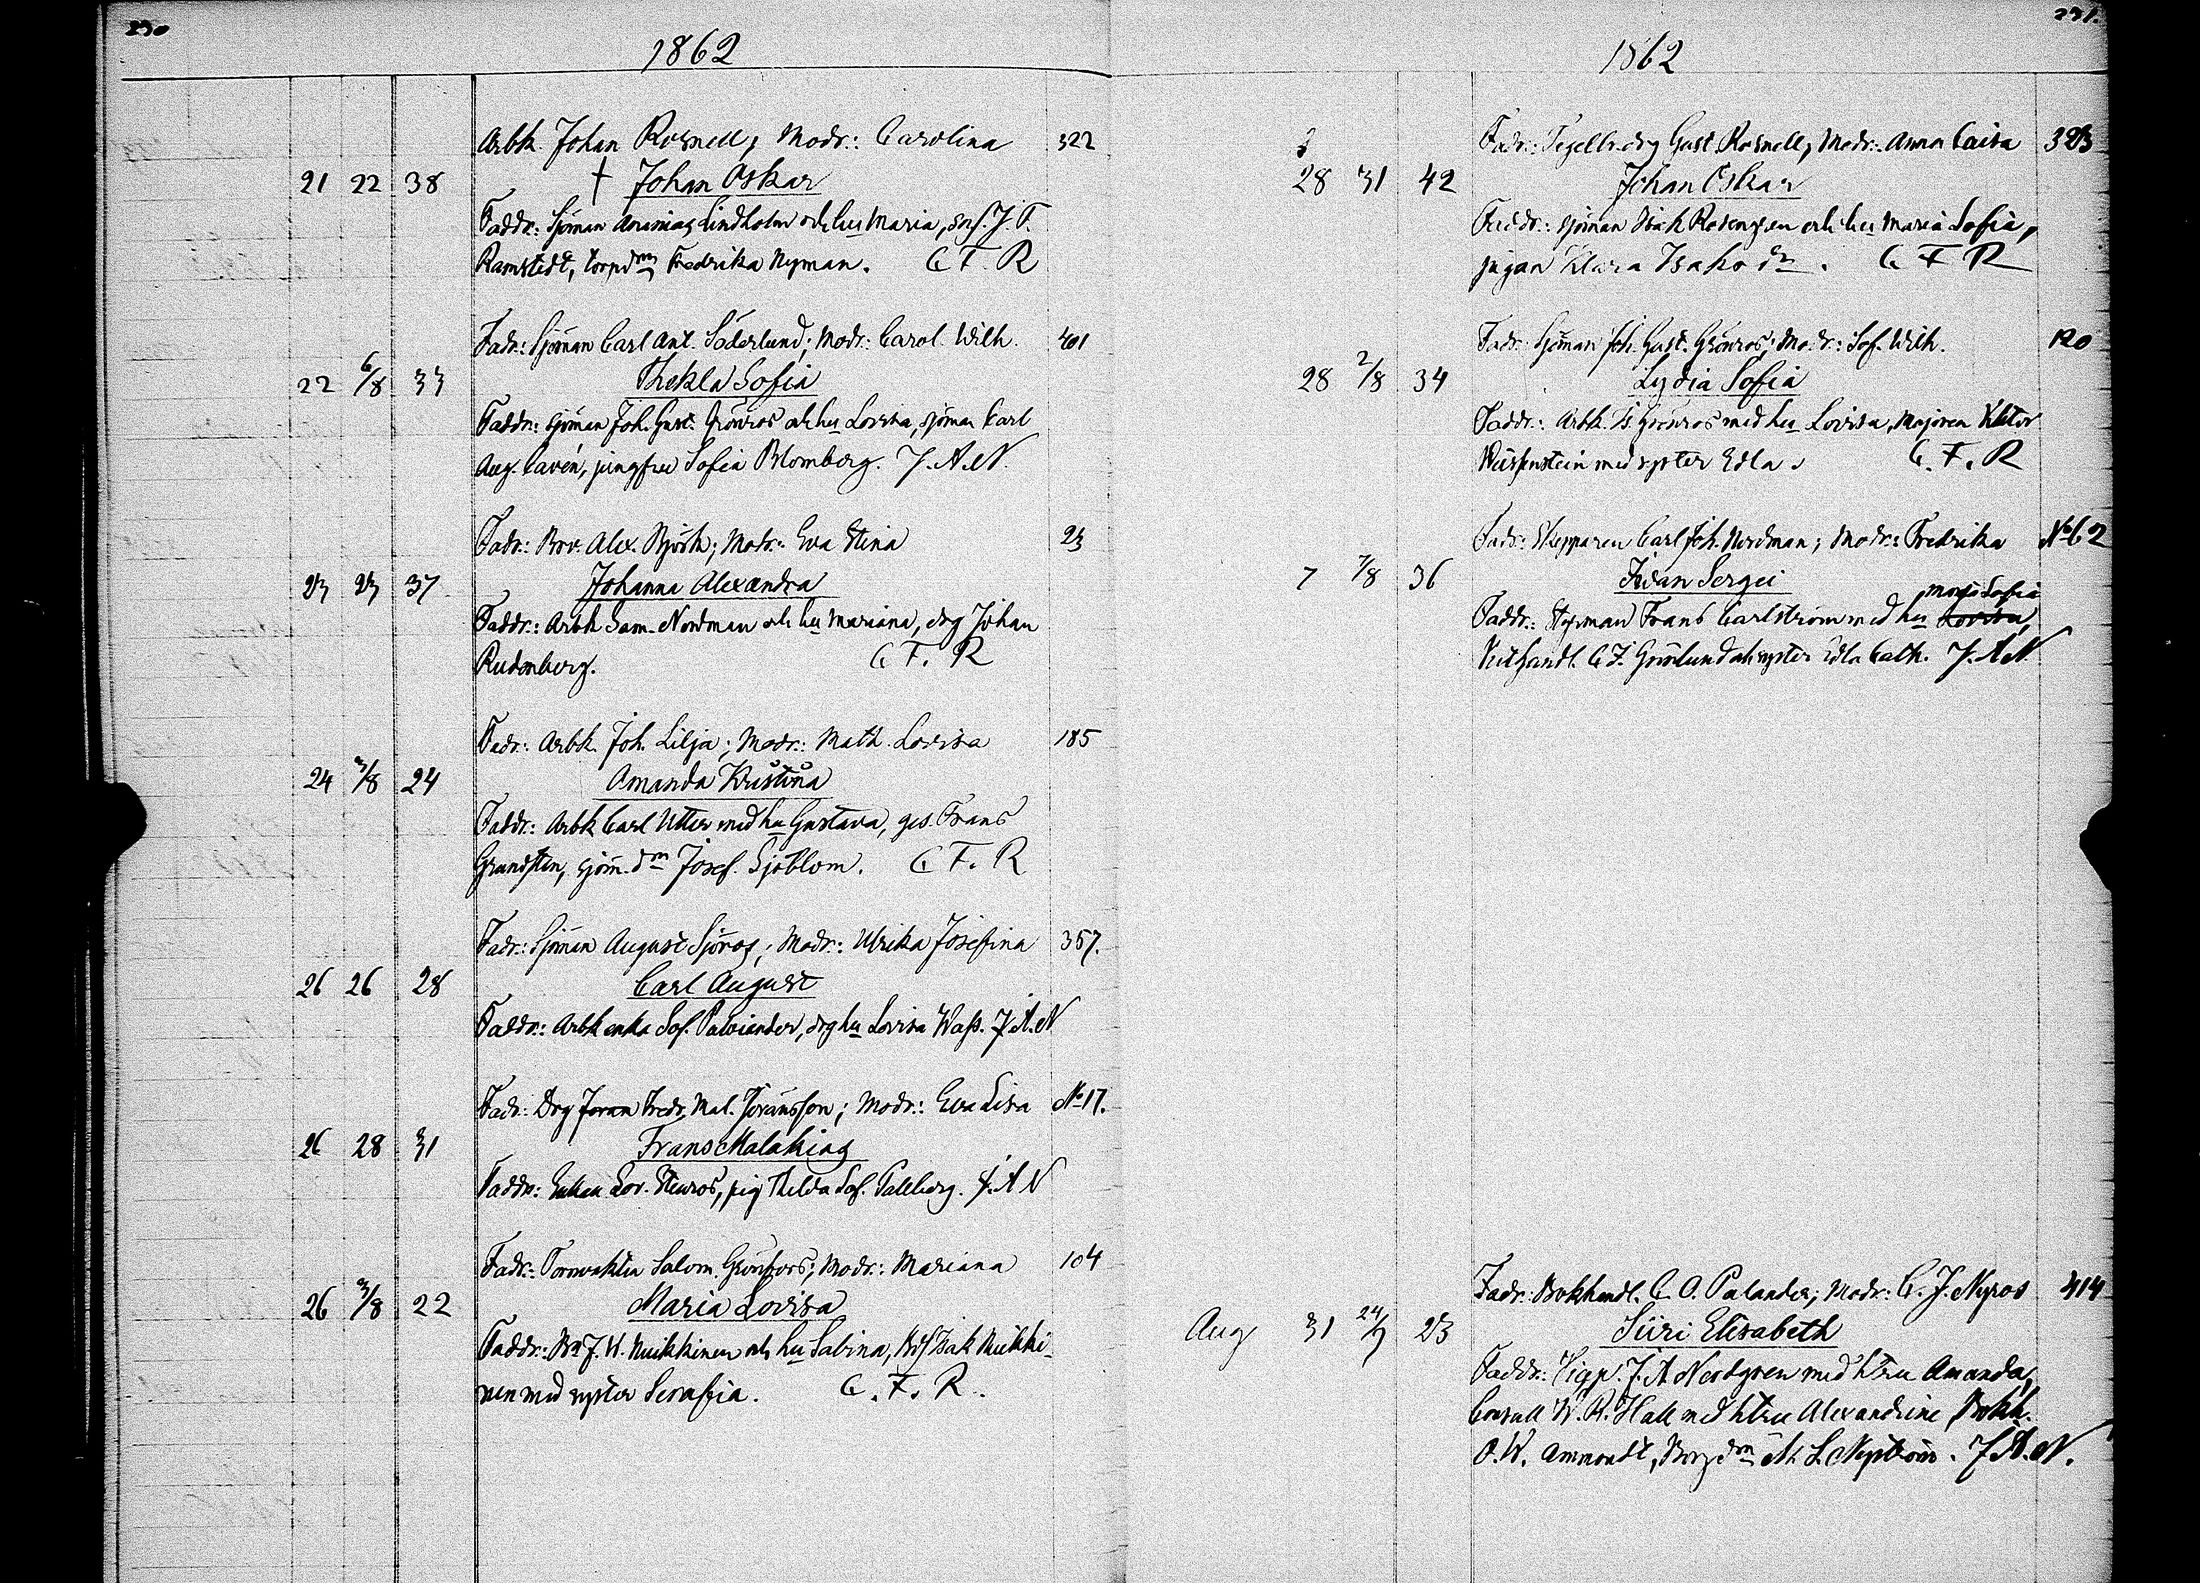 230
1862
Arbk. Johan Rosnell; Modr.: Carolina 322
21 22 38 † Johan Oskar
Faddr.: Sjöman Ananias Lindholm och hu Maria, J. F.
Ramstedt, Fredrika Nyman. C F. R
Fadr.: Sjöman Carl Ant. Söderlund; Modr.: Carol. Wilh. 401
22 6/8 33 Thekla Sofia
Faddr.: sjöman Joh. Gust. Grönros och hu Lovisa, sjöman Carl
Aug. Cavén, jungfru Sofia Blomberg. J. A. N.
Fadr.: Alex. Björk; Modr.: Eva Stina 23
23 23 37 Johanna Alexandra
Faddr.: Arbk Sam. Nordman och hu Mariana, drg Johan
Rudenberg. C F. R
Fadr.: Arbk. Joh. Lilja; Modr.: Math. Lovisa 185
24 3/8 24 Amanda Kristina
Faddr.: Arbk Carl Utter med hu Gustava, ges. Frans
Grundsten, sjöm. dn Josef. Sjöblom. C F. R
Fadr.: Sjöman August Sjöros; Modr.: Ulrika Josefina 357.
26 26 28 Carl August
Faddr.: Arbk enka Sof. drg hu Lovisa Wass. J. A. N
Fadr.: Drg Joran Fredr. Mal. Göransson; Modr.: Eva Lisa No 17.
26 28 31 Frans Malakias
Faddr.: Enkan Lov. Stenros, pig Thilda Sof. J. A N
Fadr.: Tornvaktm Salom. Grönfors; Modr.: Mariana 104
26 3/8 22 Maria Lovisa
Faddr.: J. H. Muikkinen och hu Sabina, Isak Muikki-
nen med syster Serafia. C. F. R.
231.
1862
Fadr.: Gust. Rosnell; Modr.: Anna Caisa 323
28 31 42 Johan Oskar
Faddr.: sjöman Isak Rosengren och hu Maria Sofia,
pigan Klara Isaks dn. C F R
Fadr.: Sjöman Joh. Gust. Grönros; Modr.: Sof. Wilh. 120
28 2/8 34 Lydia Sofia
Faddr.: Arbk. Is. Grönros med hu Lovisa, Majoren Viktor
med syster Edla. C. F. R
Fadr.: Skepparen Carl Joh. Nordman; Modr.: Fredrika No 62
7 7/8 36 Iwan Sergei
Maria Sofia
Faddr.: Styrman Frans Carlström med hu Lovisa,
C. F. Grönlund och syster Edla Cath. J. A N
Fadr.: Bokhandl. C. O. Palander; Modr.: C. J. Nyros 414
Aug 31 24/9 23 Siiri Elisabeth
Faddr.: J. A Nordgren med htru Amanda,
Consull W. R. Hall med htru Alexandrine, Bokh.
O. W. Ammondt, dn M. L. Nyström. J. A. N.